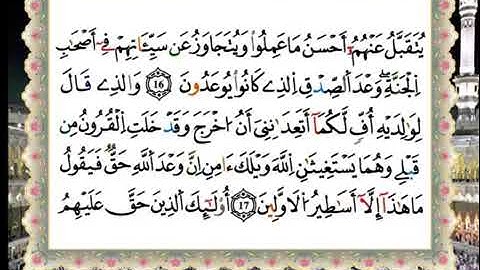 يُتَقَبَّلُ عَنْهُمُۥٓ أَحْسَنُ مَا عَمِلُوا۟ وَيُتَجَاوَزُ عَن سَيِّـَٔاتِهِمْ فِىٓ أَصْحَٰبِ
اِ۬لْجَنَّةِۖ وَعْدَ اَ۬لصِّدْقِ اِ۬لذِے كَانُوا۟ يُوعَدُونَ 16 وَالذِے قَالَ
لِوَٰلِدَيْهِ أُفࣲّ لَّكُمَآ أَتَعِدَٰنِنِىٓ أَنُ ا۟خْرَجَ وَقَدْ خَلَتِ اِ۬لْقُرُونُ مِن
قَبْلِے وَهُمَا يَسْتَغِيثَٰنِ اِ۬للَّهَ وَيْلَكَ ءَامِنِ اِنَّ وَعْدَ اَ۬للَّهِ حَقࣱّ فَيَقُولُ
مَا هَٰذَآ إِلَّآ أَسَٰطِيرُ اُ۬لَاوَّلِينَ 17 أُو۟لَٰٓئِكَ اَ۬لذِينَ حَقَّ عَلَيْهِمُ